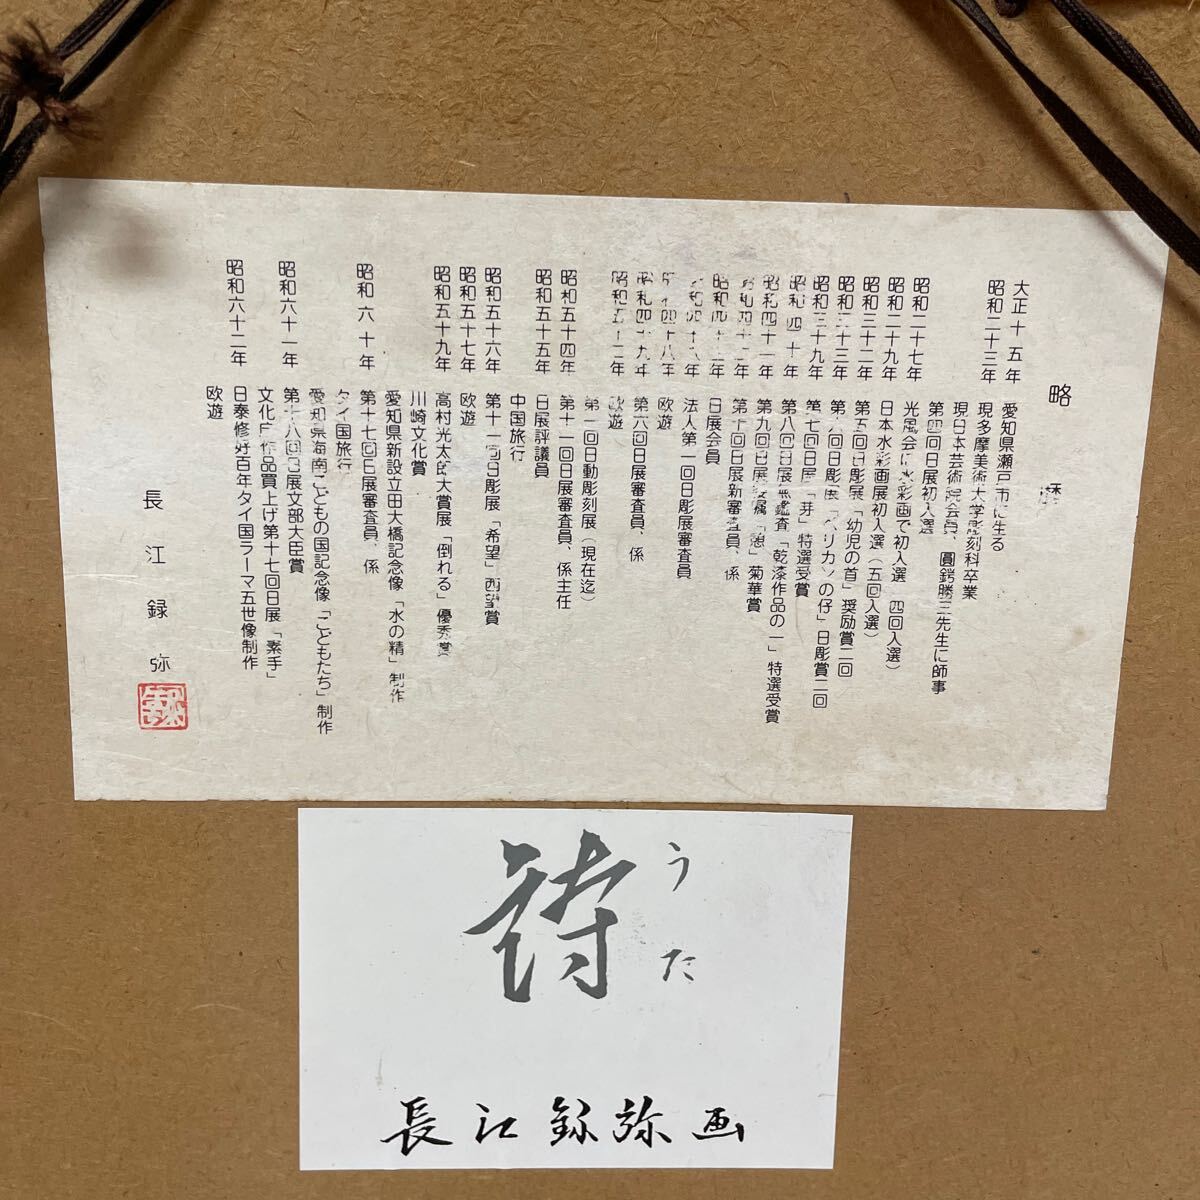 略
大正十五年 愛知県瀬戸市に生る
昭和二十三年 現多摩美術大学彫刻科卒業
現日本芸術院会員、圓鍔勝三先生に師事
昭和二十七年 第四回日展初入選
昭和二十九年 光風会に水彩画で初入選 四回入選)
昭和三十二年 日本水彩画展初入選(五回入選)
昭和三十三年 第五回日彫展「幼児の首」奨励賞二回
昭和三十九年 回日彫展「ペリカンの仔」日彫賞二回
昭和四十年 第七回日展「芽」特選受賞
昭和四十一年 第八回日展無鑑査「乾漆作品の一」特選受賞
第九回日展委嘱「憩」菊華賞
第十回日展新審査員、係
日展会員
法人第一回日彫展審査員
欧遊
昭和四十九年 第六回日展審査員、係
欧遊
第二回日動彫刻展(現在迄)
昭和五十四年 第十一回日展審査員、係主任
昭和五十五年 日展評議員
中国旅行
昭和五十六年 第十一回日彫展「希望」西望賞
昭和五十七年 欧遊
昭和五十九年 高村光太郎大賞展「倒れる」優秀賞
川崎文化賞
愛知県新設立田大橋記念像「水の精」制作
昭和六十年 第十七回日展審査員、係
タイ国旅行
愛知県海南こどもの国記念像「こどもたち」制作
昭和六十一年 第十八回日展文部大臣賞
文化庁作品買上げ第十七回日展「素手」
昭和六十二年 日泰修好百年タイ国ラーマ五世像制作
欧遊
長江録弥
詩
うた
長江録弥画